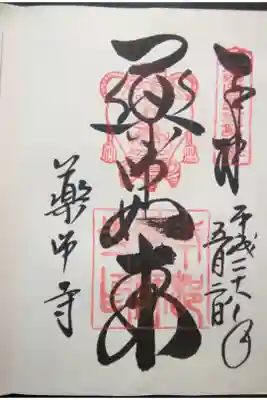 奉拝
平成二十八年
五月二日
薬師如来
薬師寺